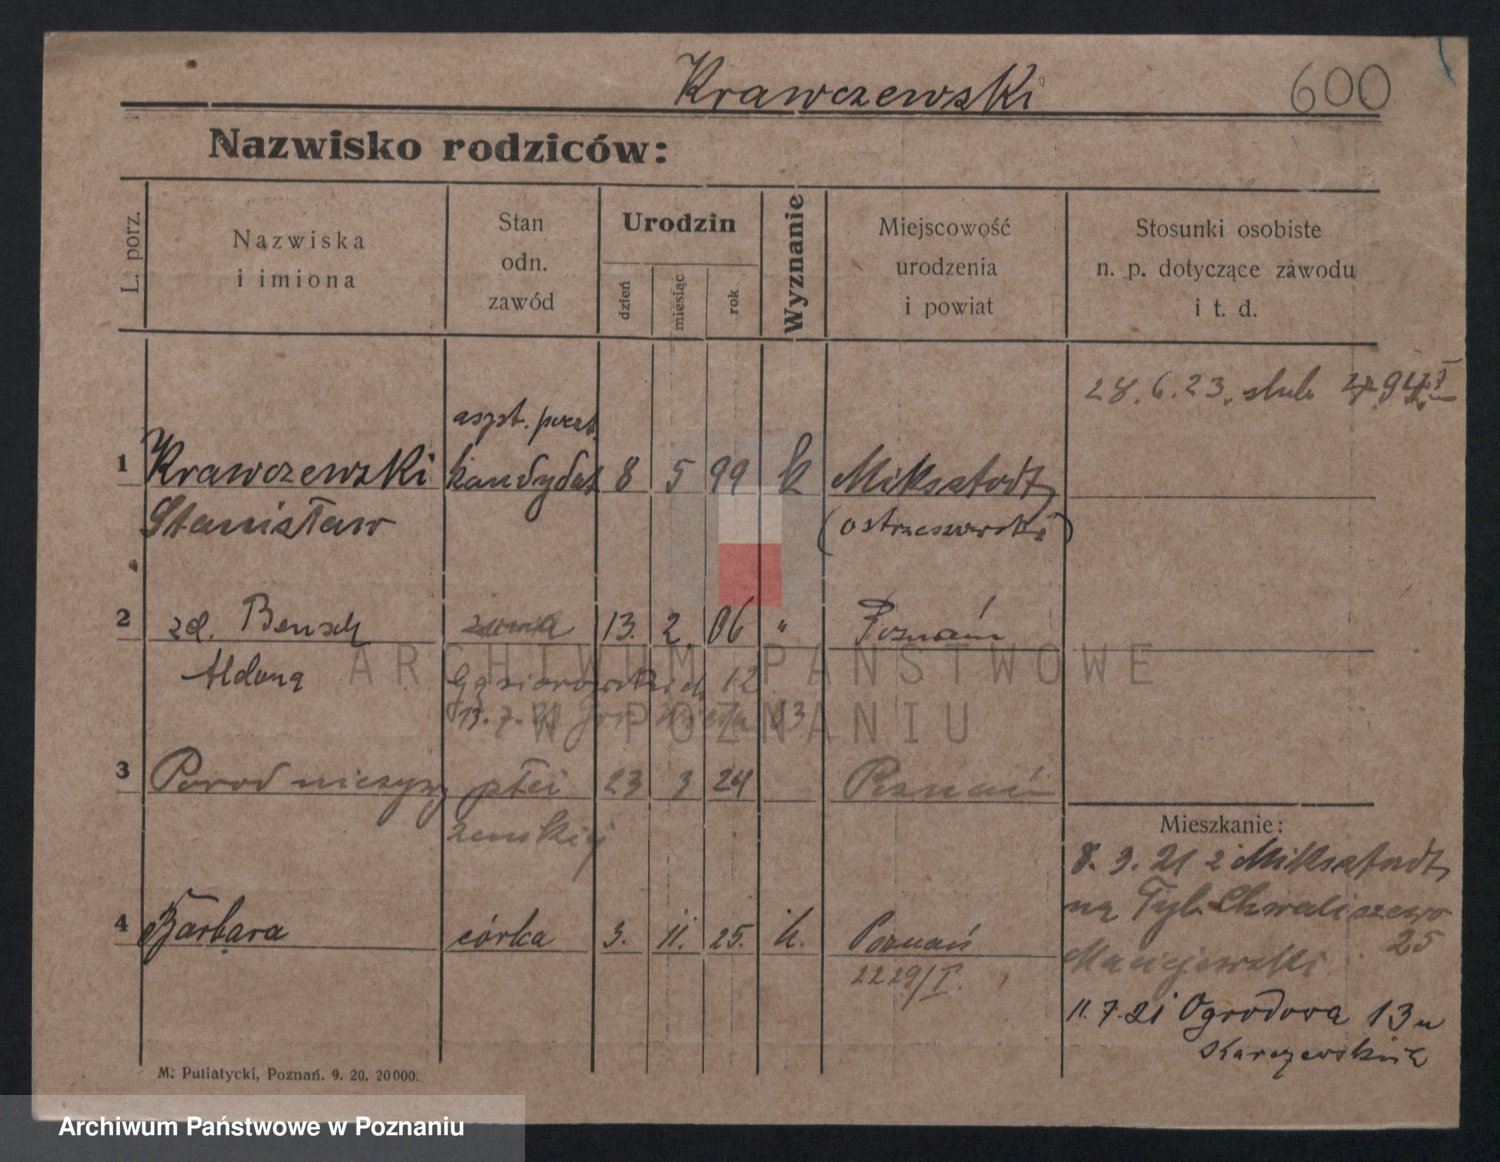 Krawczewski
600
Nazwisko rodziców:
L. porz.
Nazwiska
i imiona
Stan
odn.
zawód
Urodzin
dzień
miesiąc
rok
Wyznanie
Miejscowość
urodzenia
i powiat
Stosunki osobiste
n. p. dotyczące zawodu
i t. d.
28.6.23. ślub
aspt. poczt.
1 Krawczewski kandydat 8 5 99 k Miksztodt
Stanisław (ostrzeszowski)
2 zd. Bensch żona 13. 2. 06 " Poznań
Aldona Gąsiorowskich 12
3 Poród nieżywy płci 23 3 24 Poznań
żenskiej
Mieszkanie:
8. 3. 21 z Miksztodt
na Tyl. Chwaliszewo
25
Maciejewski
4 Barbara córka 3. 11. 25. k. Poznań
2229/I.
11.7.21 Ogrodowa 13 u
Karczewskich
M. Putiatycki, Poznań. 9. 20. 20000.
ARCHIWUM PAŃSTWOWE
W POZNANIU
Archiwum Państwowe w Poznaniu